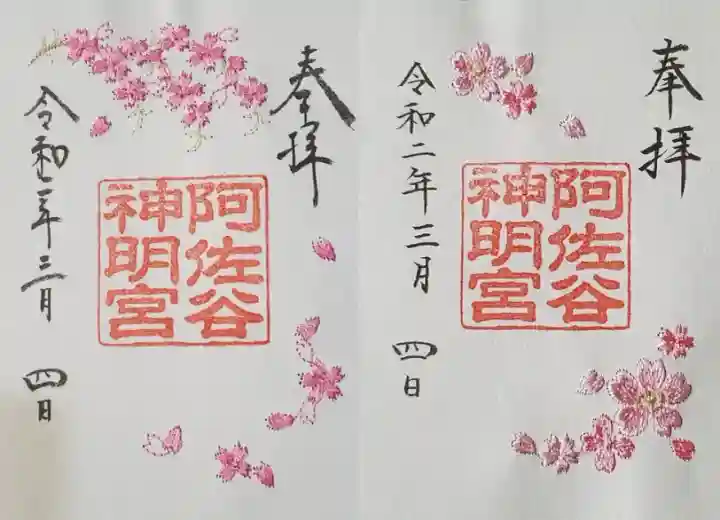 奉拝
阿佐谷
神明宮
令和二年三月 四日
奉拝
阿佐谷
神明宮
令和二年三月 四日